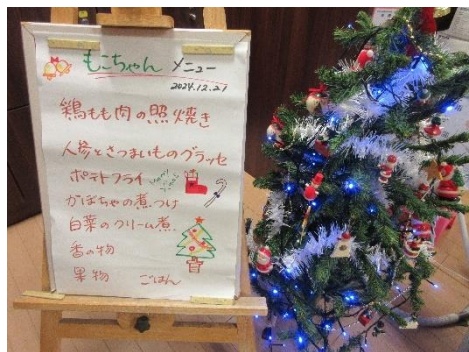 もこちゃん メニュー
2024.12.21
鶏もも肉の照焼き
人参とさつまいものグラッセ
ポテトフライ
かぼちゃの煮つけ
白菜のクリーム煮
香の物
果物 ごはん